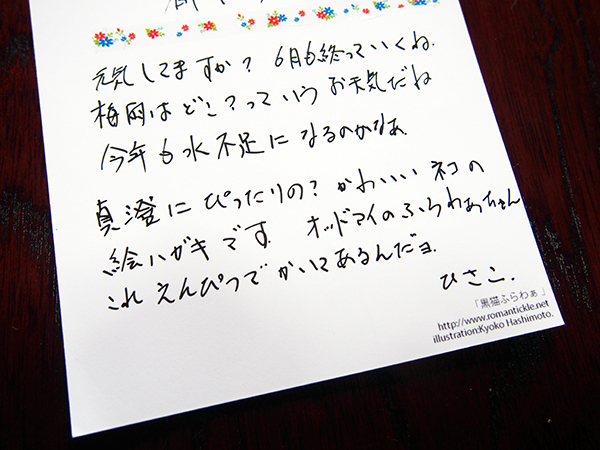 元気してますか? 6月も終っていくね.
梅雨はどこ?っていうお天気だね
今年も水不足になるのかなぁ.
真澄にぴったりの? かわいい ネコの
絵ハガキです. オッドマイのふらわぁちゃん
これ えんぴつで かいてあるんだヨ.
ひさこ.
「黒猫ふらわぁ」
http://www.romantickle.net
illustration:Kyoko Hashimoto.